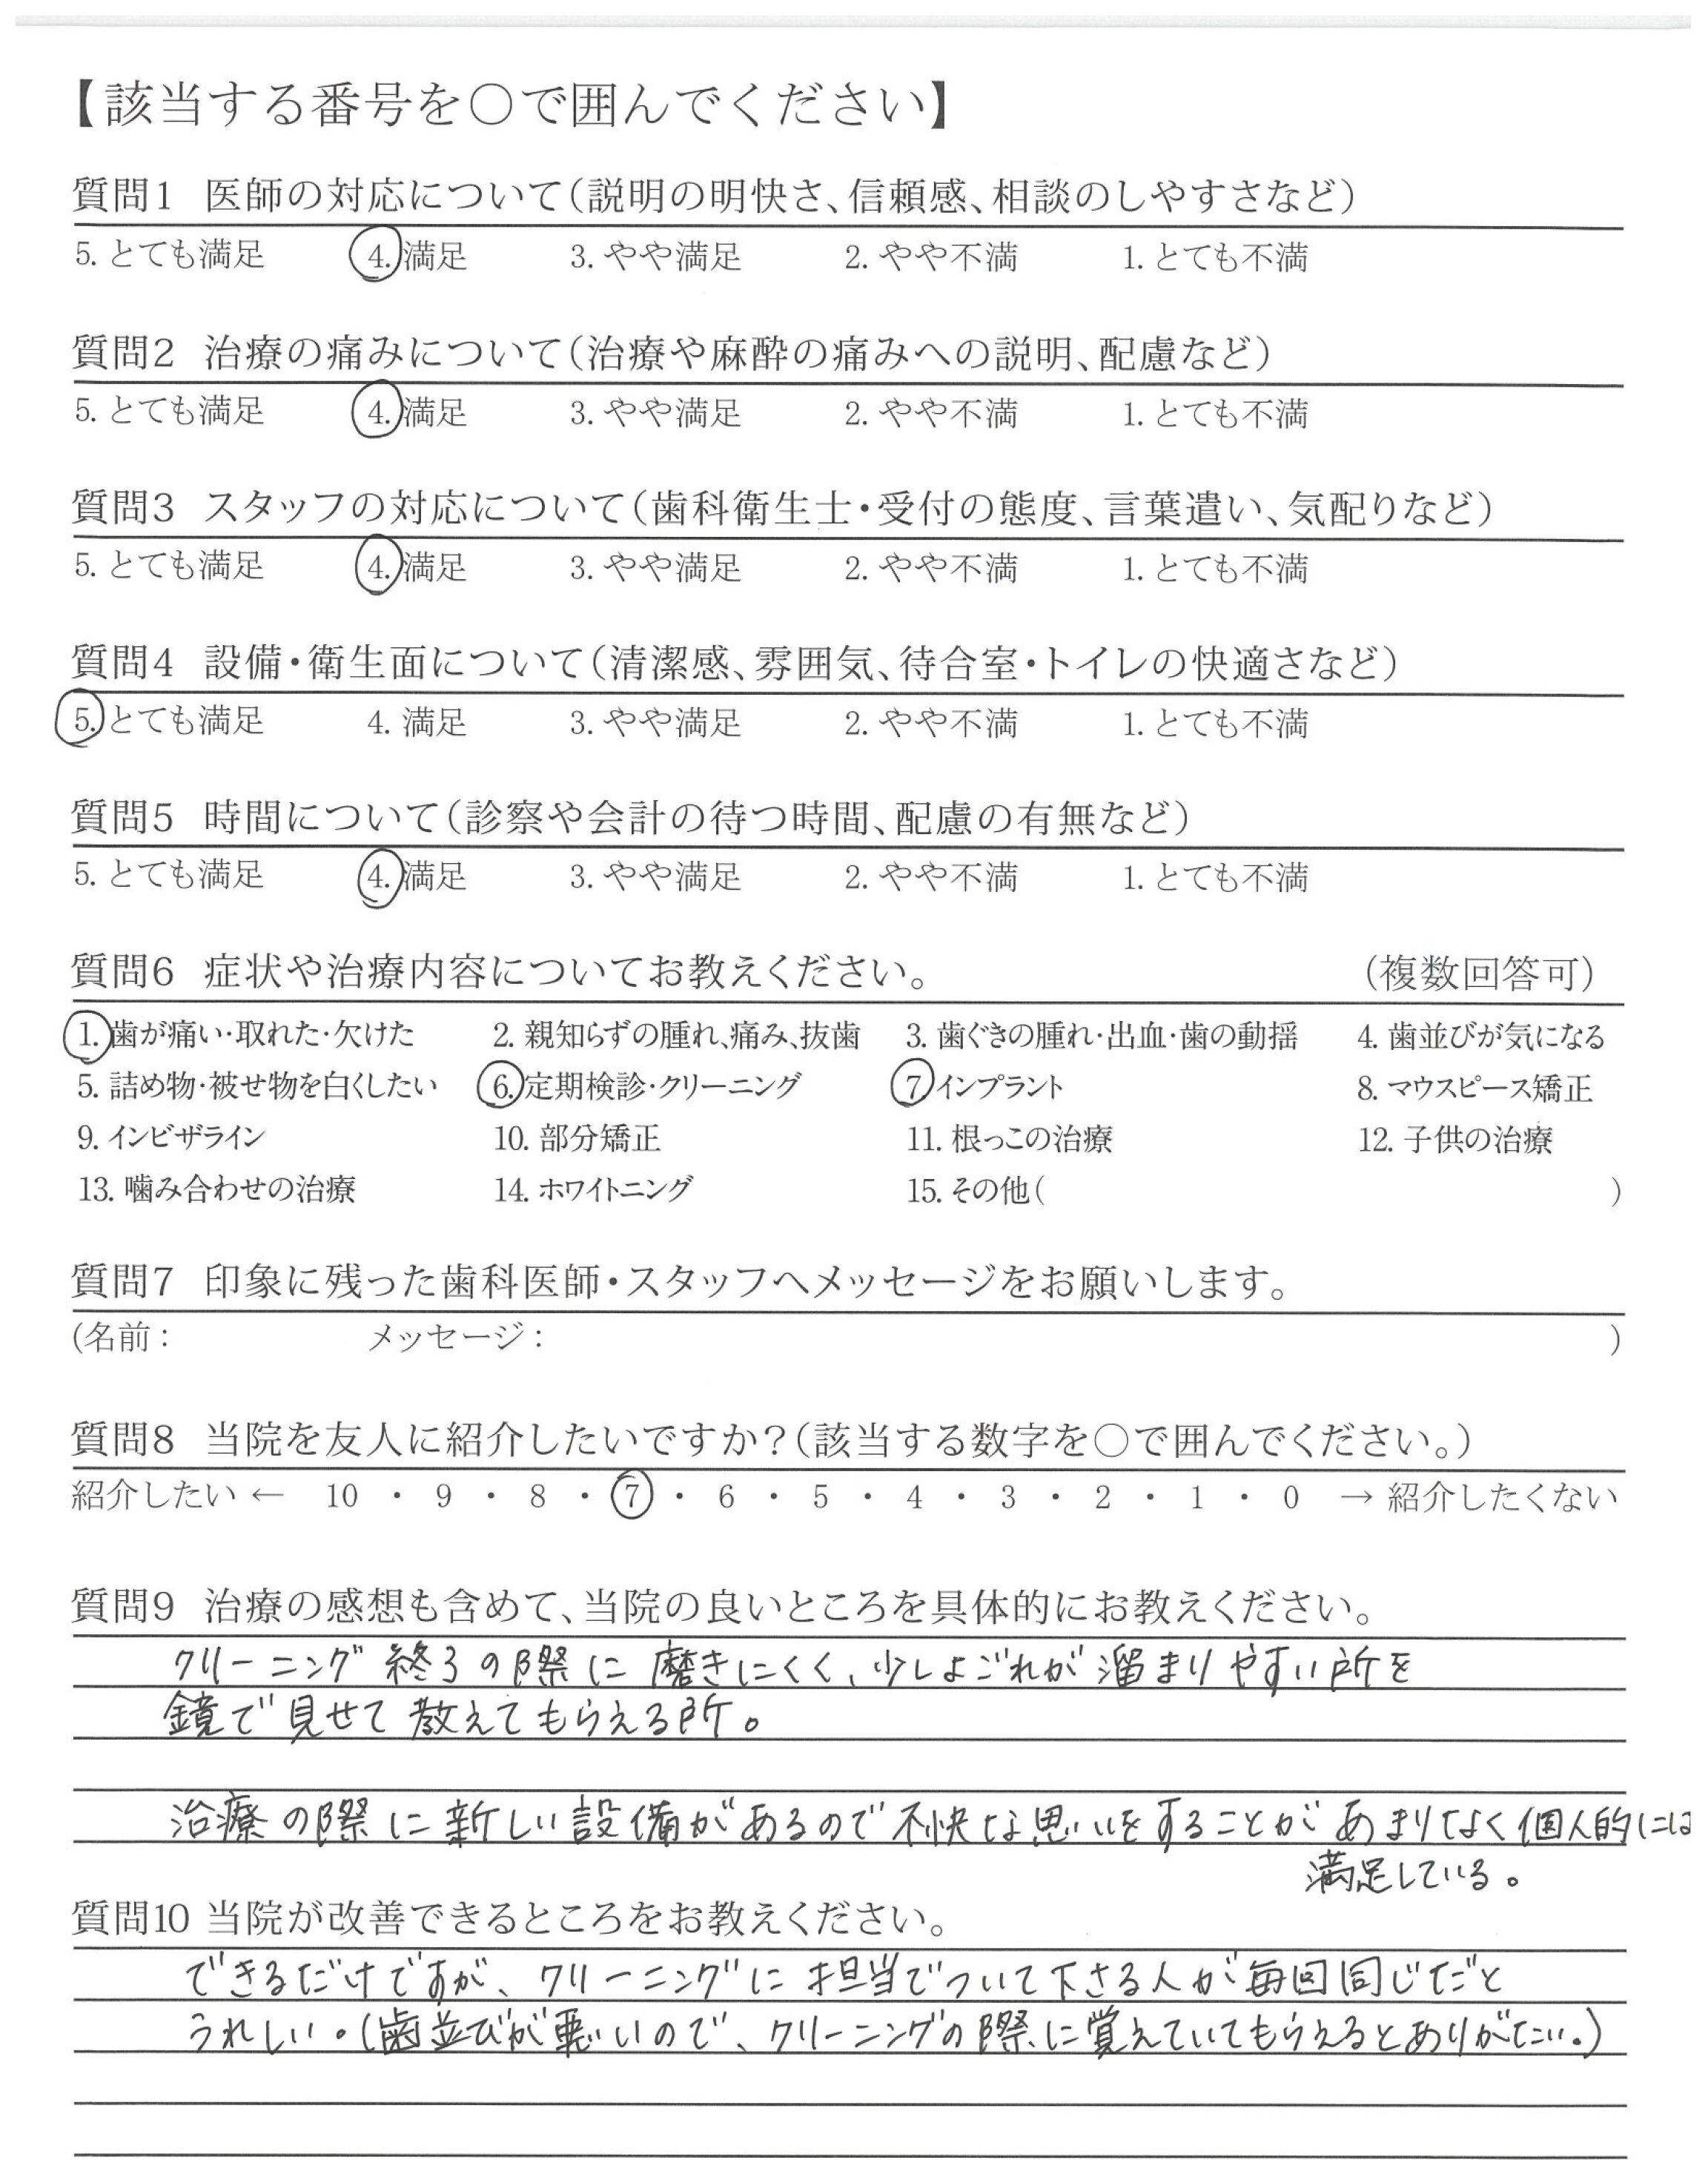 【該当する番号を○で囲んでください】
質問1 医師の対応について(説明の明快さ、信頼感、相談のしやすさなど)
5. とても満足 4. 満足 3. やや満足 2. やや不満 1. とても不満
質問2 治療の痛みについて(治療や麻酔の痛みへの説明、配慮など)
5. とても満足 4. 満足 3. やや満足 2. やや不満 1. とても不満
質問3 スタッフの対応について(歯科衛生士・受付の態度、言葉遣い、気配りなど)
5. とても満足 4. 満足 3. やや満足 2. やや不満 1. とても不満
質問4 設備・衛生面について(清潔感、雰囲気、待合室・トイレの快適さなど)
5. とても満足 4. 満足 3. やや満足 2. やや不満 1. とても不満
質問5 時間について(診察や会計の待つ時間、配慮の有無など)
5. とても満足 4. 満足 3. やや満足 2. やや不満 1. とても不満
質問6 症状や治療内容についてお教えください。 (複数回答可)
1. 歯が痛い・取れた・欠けた 2. 親知らずの腫れ、痛み、抜歯 3. 歯ぐきの腫れ・出血・歯の動揺 4. 歯並びが気になる
5. 詰め物・被せ物を白くしたい 6. 定期検診・クリーニング 7. インプラント 8. マウスピース矯正
9. インビザライン 10. 部分矯正 11. 根っこの治療 12. 子供の治療
13. 噛み合わせの治療 14. ホワイトニング 15. その他( )
質問7 印象に残った歯科医師・スタッフへメッセージをお願いします。
(名前: メッセージ: )
質問8 当院を友人に紹介したいですか?(該当する数字を○で囲んでください。)
紹介したい ← 10 ・ 9 ・ 8 ・ 7 ・ 6 ・ 5 ・ 4 ・ 3 ・ 2 ・ 1 ・ 0 → 紹介したくない
質問9 治療の感想も含めて、当院の良いところを具体的にお教えください。
クリーニング終了の際に磨きにくく、少しよごれが溜まりやすい所を
鏡で見せて教えてもらえる所。
治療の際に新しい設備があるので不快な思いをすることがあまりなく個人的には
満足している。
質問10 当院が改善できるところをお教えください。
できるだけですが、クリーニングに担当でついて下さる人が毎回同じだと
うれしい。(歯並びが悪いので、クリーニングの際に覚えていてもらえるとありがたい。)